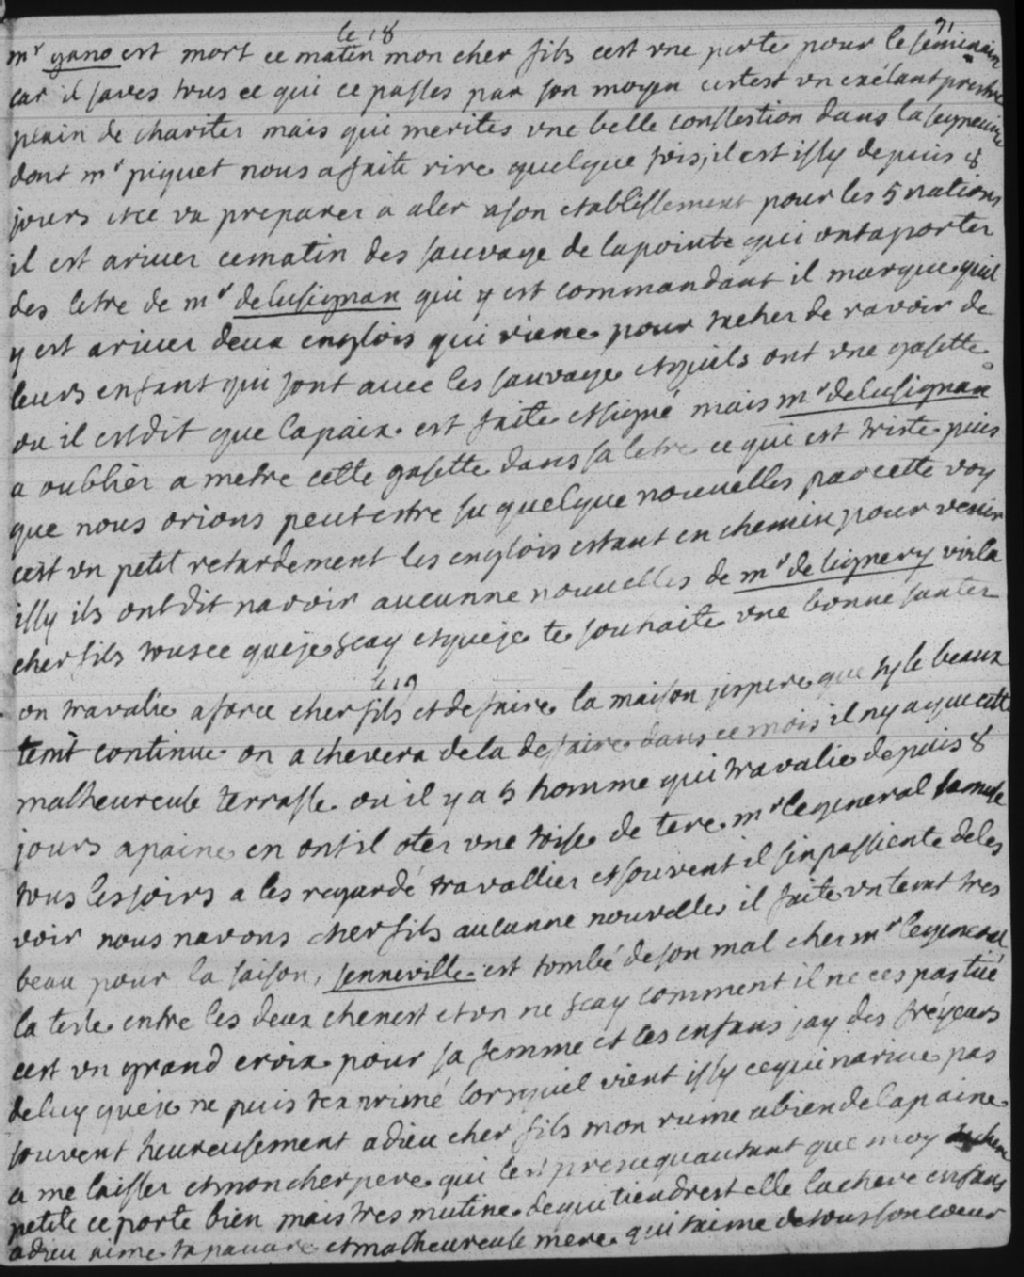 71
le 18
mr yano est mort ce matin mon cher fils cest vne perte pour le seminair
car il saves tous ce qui ce passes par son moyen cestest vn exelant prestre
plain de chariter mais qui merites vne belle conffestion dans la seyneurie
dont mr piquet nous a faite rire quelque fois, il est issy depuis 8
jours et ce va preparer a aler a son etablissement pour les 5 nations
il est ariuer ce matin des sauvage de lapointe qui ont aporter
des letre de mr delusignan qui y est commandant il marque quil
y est ariuer deux englois qui viene pour tacher de ravoir de
leurs enfant qui sont avec les sauvage et quiels ont vne gasette
ou il est dit que la paix est faite et signé mais mr delusignan
a oublier a metre cette gasette dans sa letre ce qui est triste puis
que nous orions peut estre su quelque nouuelles par cette voy
cest vn petit retardement les englois estant en chemin pour venir
issy ils ont dit navoir aucunne nouuelles de mr de lignery voila
cher fils tous ce que je scay et que je te souhaite vne bonne santer
le 19
on travalie a force cher fils et defaire la maison jespere que sy le beaux
temt continue on achevera de la defaire dans ce mois il ny a que cette
malheureuse terrasse ou il y a 5 homme qui travalie depuis 8
jours a paine en ont il oter vne toise de tere mr le general samuse
tous les soirs a les regardé travallier et souvent il sinpassiente de les
voir nous navons cher fils aucunne nouvelles il faite vn temt tres
beau pour la saison, senneville est tombé de son mal chez mr legeneral
la teste entre les deux chenest et on ne scay comment il ne ces pas tué
cest vn grand croix pour sa femme et les enfans jay des fréyeurs
de luy que je ne puis texprimé lorsquiel vient issy ce qui narive pas
souvent heureusement adieu cher fils mon rume a bien de la paine
a me laisser et mon cher pere qui presque autant que moy
petite ce porte bien mais tres mutine de qui tiendrest elle la chere enfans
adieu aime ta pauvre et malheureuse mere qui taime de tous son coeur